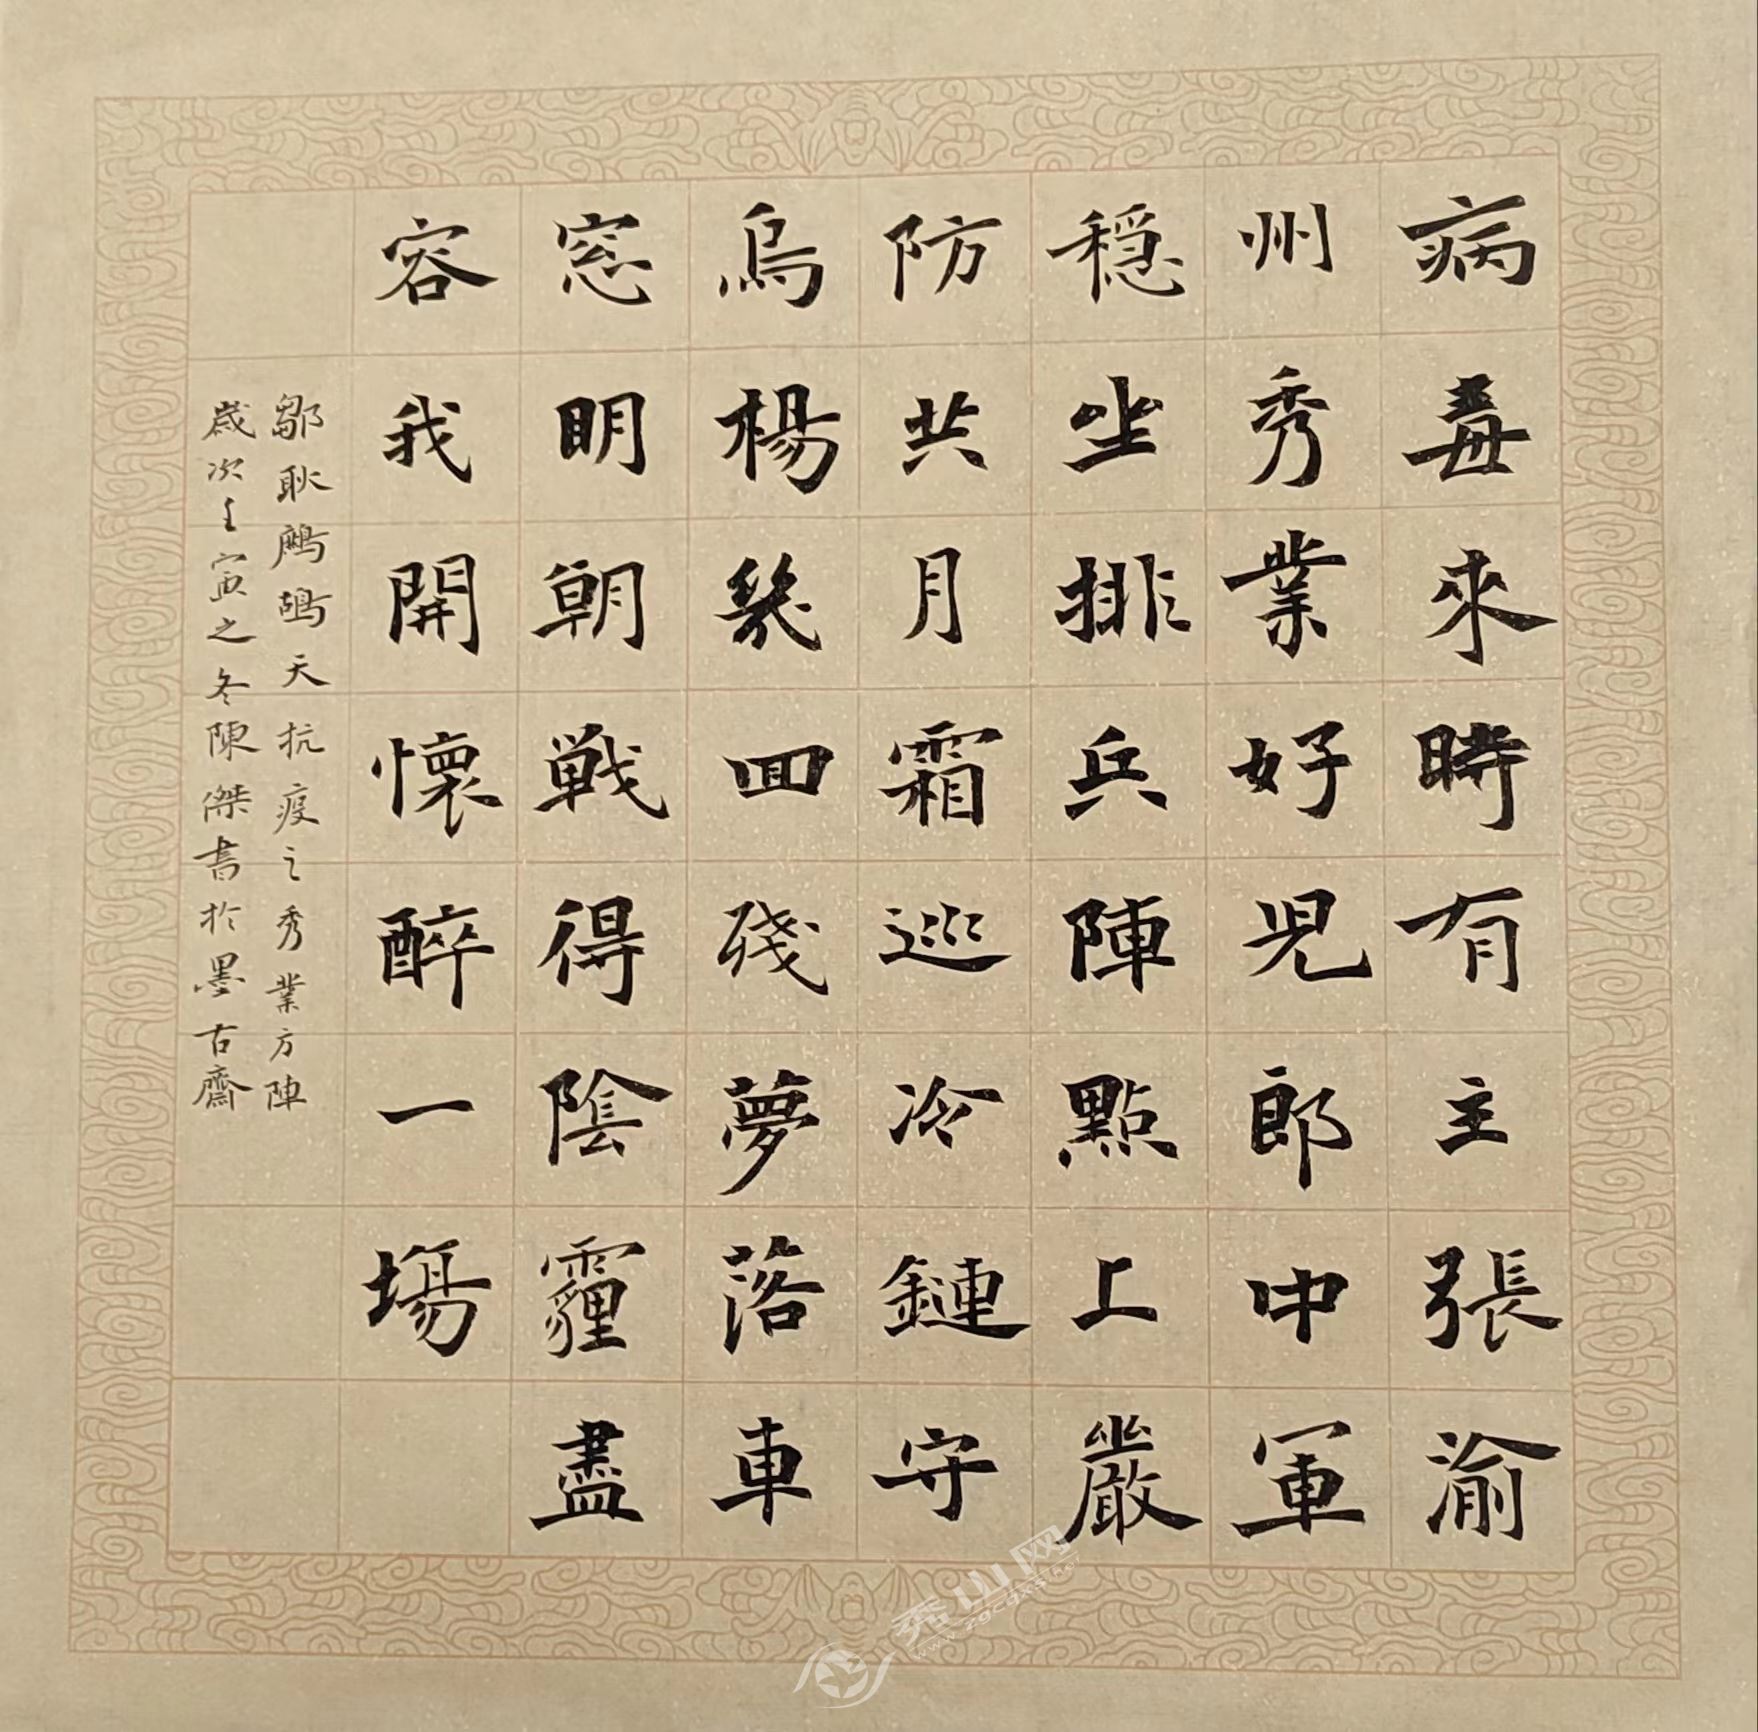 病毒來時有主張渝
州秀業好兒郎中軍
穩坐排兵陣點上嚴
防共月霜巡冷鏈守
烏楊幾回殘夢落車
窓明朝戰得陰霾盡
容我開懷醉一場
鄒耿鷓鴣天抗疫之秀業方陣
歲次壬寅之冬陳傑書於墨古齋
秀山网
www.zgcqxs.net